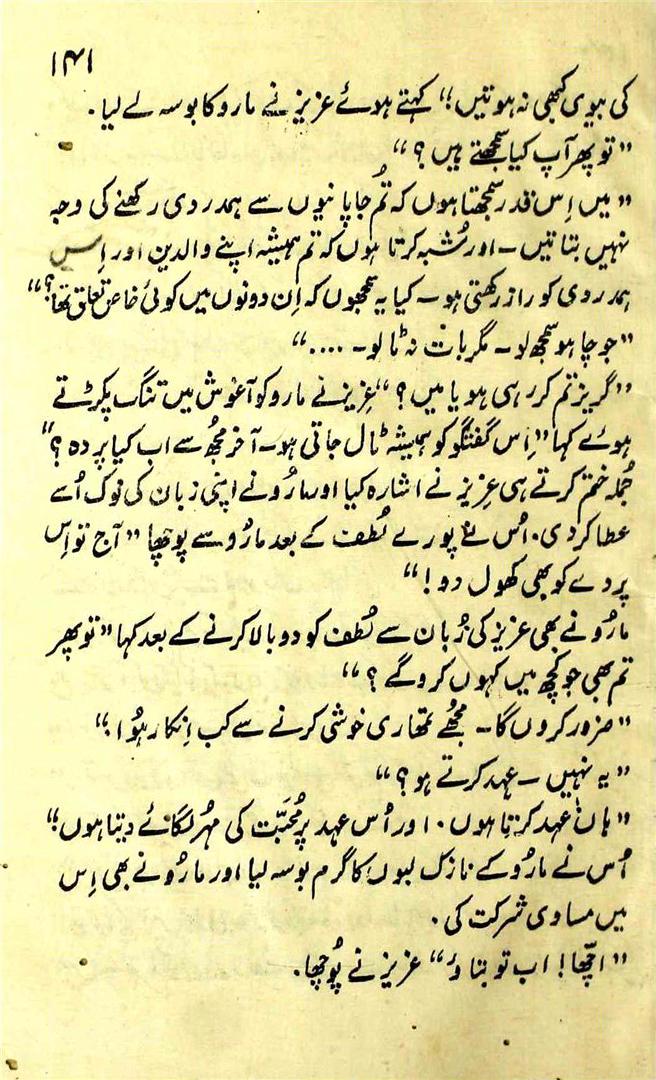 ۱۴۱
کی بیوی کبھی نہ ہوتیں؛“ کہتے ہوئے عزیز نے مارو کا بوسہ لے لیا۔
”تو پھر آپ کیا سمجھتے ہیں؟“
”میں اِس قدر سمجھتا ہوں کہ تُم جاپانیوں سے ہمدردی رکھنے کی وجہ
نہیں بتاتیں۔ اور شُبہ کرتا ہوں کہ تم ہمیشہ اپنے والدین اور اِس
ہمدردی کو راز رکھتی ہو۔ کیا یہ سمجھوں کہ اِن دونوں میں کوئی خاص تعلق تھا؟“
”جو چاہو سمجھ لو۔ مگر بات نہ ٹالو۔ ....“
”گریز تم کر رہی ہو یا میں؟“ عزیز نے مارو کو آغوش میں تنگ پکڑتے
ہوئے کہا ”اِس گفتگو کو ہمیشہ ٹال جاتی ہو۔ آخر مُجھ سے اب کیا پردہ؟“
جُملہ ختم کرتے ہی عزیز نے اشارہ کیا اور مارُو نے اپنی زبان کی نوک اُسے
عطا کر دی۔ اُس نے پورے لُطف کے بعد مارُو سے پوچھا ”آج تو اِس
پردے کو بھی کھول دو!“
مارُو نے بھی عزیز کی زُبان سے لُطف کو دوبالا کرنے کے بعد کہا ”تو پھر
تم بھی جو کچھ میں کہوں کرو گے؟“
”ضرور کروں گا۔ مجھے تمھاری خوشی کرنے سے کب اِنکار ہُوا؛“
”یہ نہیں۔ عہد کرتے ہو؟“
”ہاں عہد کرتا ہوں۔ اور اُس عہد پر مُحبّت کی مہُر لگائے دیتا ہوں؛“
اُس نے مارُو کے نازک لبوں کا گرم بوسہ لیا اور مارُو نے بھی اِس
میں مساوی شرکت کی۔
”اچّھا! اب تو بتاؤ“ عزیز نے پُوچھا۔